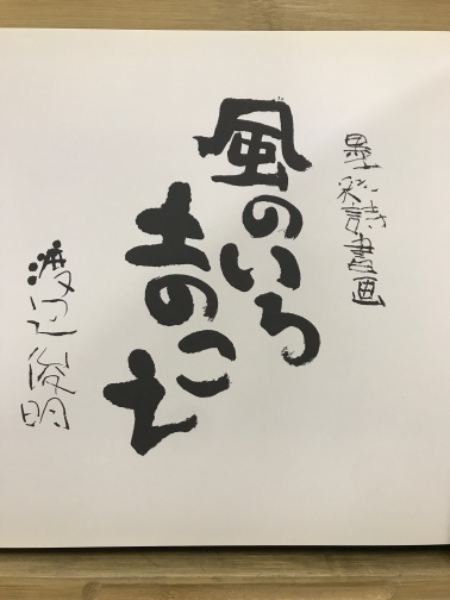 墨彩詩書画
風のいろ
土のこえ
渡辺俊明